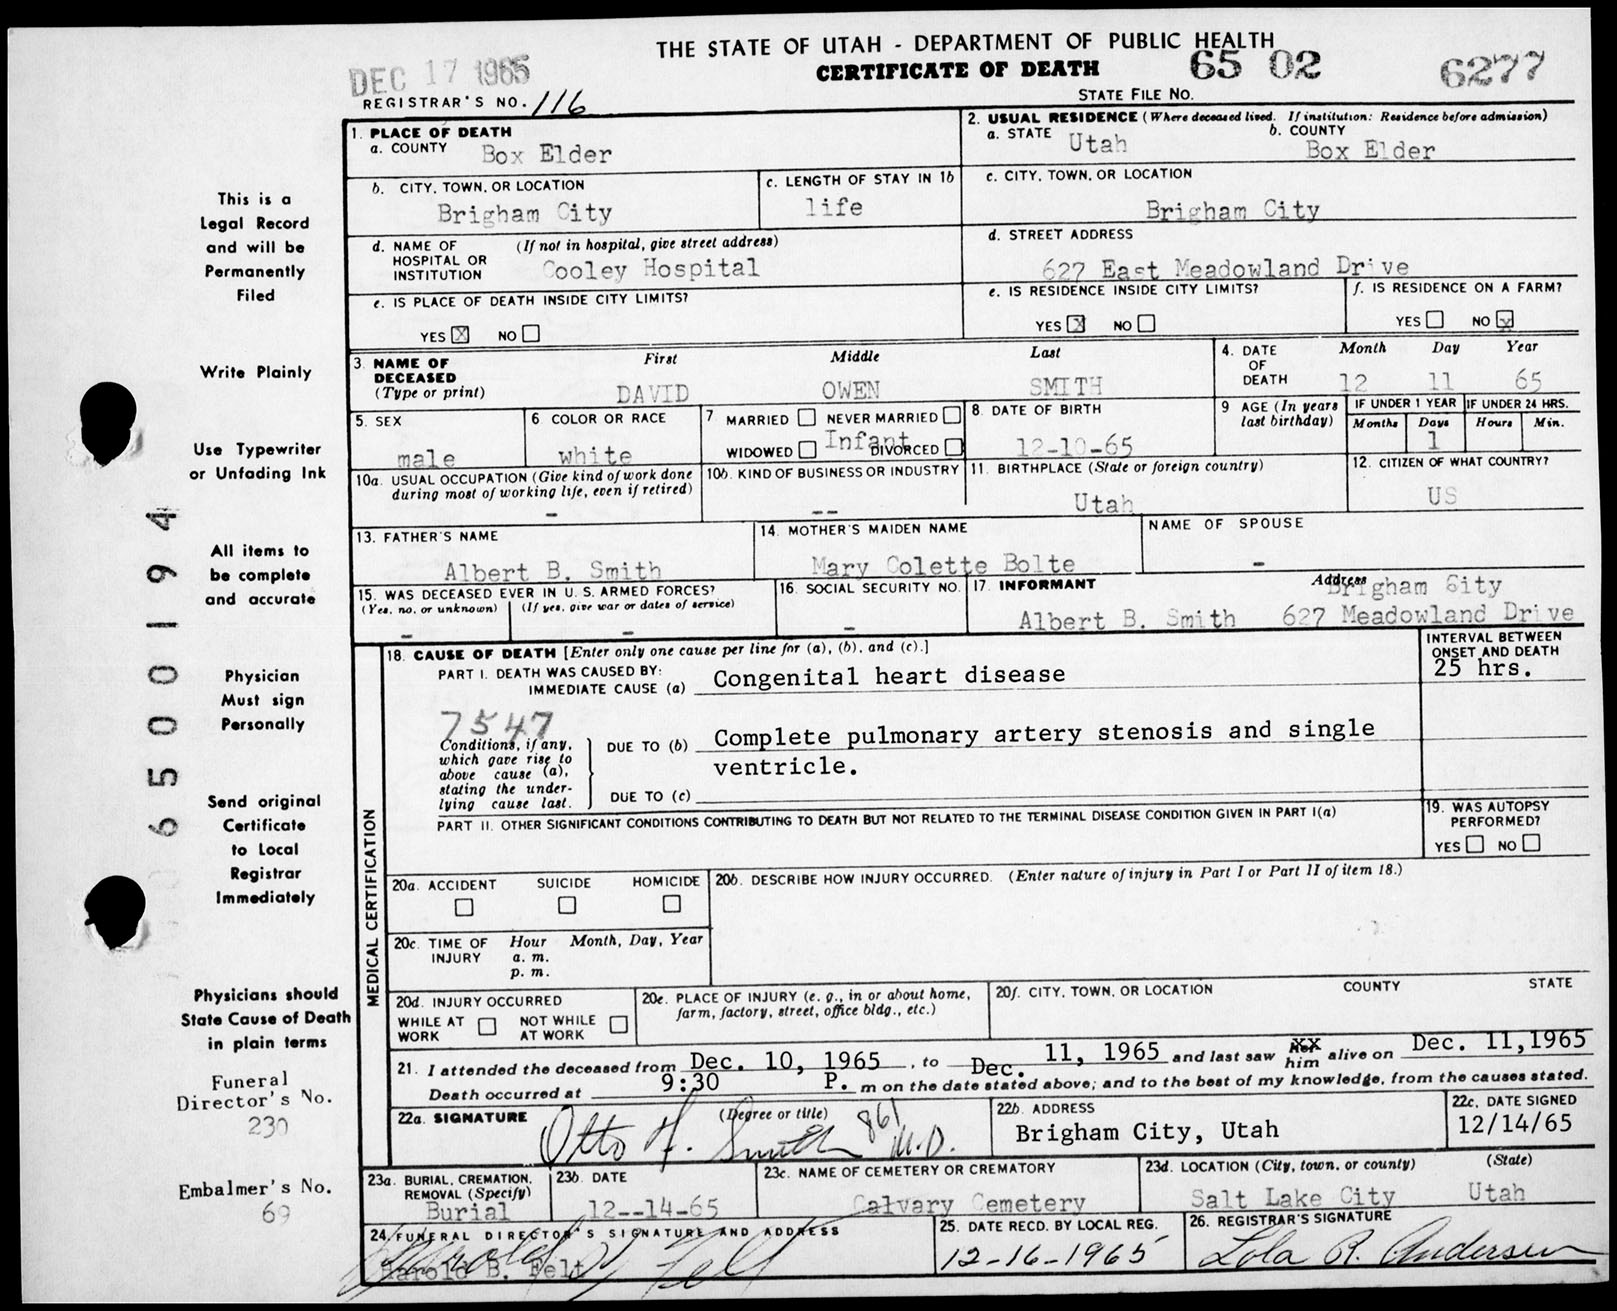 THE STATE OF UTAH - DEPARTMENT OF PUBLIC HEALTH
CERTIFICATE OF DEATH
65 02
6277
DEC 17 1965
REGISTRAR'S NO. 116
STATE FILE NO.
1. PLACE OF DEATH
a. COUNTY Box Elder
2. USUAL RESIDENCE (Where deceased lived. If institution: Residence before admission)
a. STATE Utah b. COUNTY Box Elder
b. CITY, TOWN, OR LOCATION Brigham City
c. LENGTH OF STAY IN 1b life
c. CITY, TOWN, OR LOCATION Brigham City
d. NAME OF HOSPITAL OR INSTITUTION (If not in hospital, give street address) Cooley Hospital
d. STREET ADDRESS 627 East Meadowland Drive
e. IS PLACE OF DEATH INSIDE CITY LIMITS?
YES X NO
e. IS RESIDENCE INSIDE CITY LIMITS?
YES X NO
f. IS RESIDENCE ON A FARM?
YES NO X
3. NAME OF DECEASED (Type or print)
First Middle Last
DAVID OWEN SMITH
4. DATE OF DEATH
Month Day Year
12 11 65
5. SEX male
6 COLOR OR RACE white
7 MARRIED NEVER MARRIED
WIDOWED Infant DIVORCED
8. DATE OF BIRTH 12-10-65
9 AGE (In years last birthday)
IF UNDER 1 YEAR IF UNDER 24 HRS.
Months Days Hours Min.
1
10a. USUAL OCCUPATION (Give kind of work done during most of working life, even if retired) -
10b. KIND OF BUSINESS OR INDUSTRY --
11. BIRTHPLACE (State or foreign country) Utah
12. CITIZEN OF WHAT COUNTRY? US
13. FATHER'S NAME Albert B. Smith
14. MOTHER'S MAIDEN NAME Mary Colette Bolte
NAME OF SPOUSE -
15. WAS DECEASED EVER IN U. S. ARMED FORCES?
(Yes, no, or unknown) (If yes, give war or dates of service)
- -
16. SOCIAL SECURITY NO. -
17. INFORMANT Address Brigham City
Albert B. Smith 627 Meadowland Drive
18. CAUSE OF DEATH [Enter only one cause per line for (a), (b), and (c).]
INTERVAL BETWEEN ONSET AND DEATH
25 hrs.
PART I. DEATH WAS CAUSED BY:
IMMEDIATE CAUSE (a) Congenital heart disease
7547
Conditions, if any, which gave rise to above cause (a), stating the underlying cause last.
DUE TO (b) Complete pulmonary artery stenosis and single
ventricle.
DUE TO (c)
PART II. OTHER SIGNIFICANT CONDITIONS CONTRIBUTING TO DEATH BUT NOT RELATED TO THE TERMINAL DISEASE CONDITION GIVEN IN PART I(a)
19. WAS AUTOPSY PERFORMED?
YES NO
MEDICAL CERTIFICATION
20a. ACCIDENT SUICIDE HOMICIDE
20b. DESCRIBE HOW INJURY OCCURRED. (Enter nature of injury in Part I or Part II of item 18.)
20c. TIME OF INJURY Hour Month, Day, Year
a. m.
p. m.
20d. INJURY OCCURRED
WHILE AT WORK NOT WHILE AT WORK
20e. PLACE OF INJURY (e. g., in or about home, farm, factory, street, office bldg., etc.)
20f. CITY, TOWN, OR LOCATION COUNTY STATE
21. I attended the deceased from Dec. 10, 1965, to Dec. 11, 1965 and last saw her him alive on Dec. 11,1965
Death occurred at 9:30 P. m on the date stated above; and to the best of my knowledge, from the causes stated.
22a. SIGNATURE (Degree or title)
Otto H. Smith M.D.
861
22b. ADDRESS Brigham City, Utah
22c. DATE SIGNED 12/14/65
23a. BURIAL, CREMATION, REMOVAL (Specify) Burial
23b. DATE 12--14-65
23c. NAME OF CEMETERY OR CREMATORY Calvary Cemetery
23d. LOCATION (City, town, or county) (State)
Salt Lake City Utah
24. FUNERAL DIRECTOR'S SIGNATURE AND ADDRESS
Harold B. Felt
Harold B. Felt
25. DATE RECD. BY LOCAL REG. 12-16-1965
26. REGISTRAR'S SIGNATURE
Lola R. Andersen
This is a
Legal Record
and will be
Permanently
Filed
Write Plainly
Use Typewriter
or Unfading Ink
All items to
be complete
and accurate
Physician
Must sign
Personally
Send original
Certificate
to Local
Registrar
Immediately
Physicians should
State Cause of Death
in plain terms
Funeral
Director's No.
230
Embalmer's No.
69
6500194